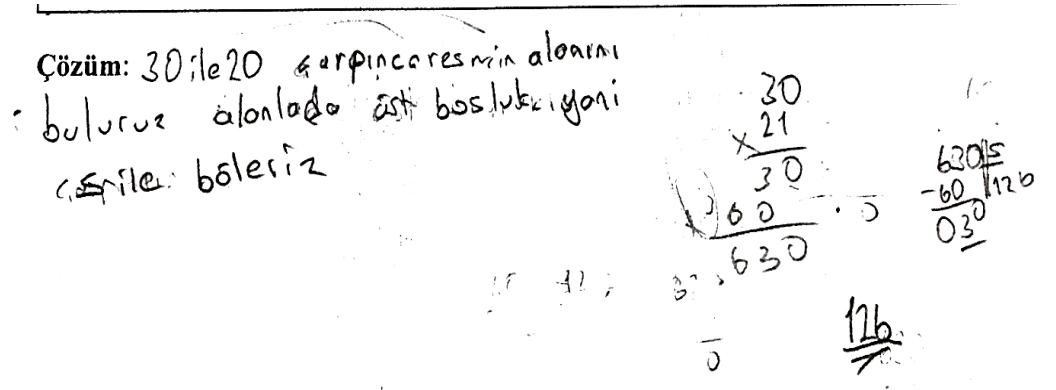 Çözüm: 30 ile 20 çarpınca resmin alanını
buluruz alanlada üst boslukuyani
5 ile böleriz
30
x 21
30
60
630
630 5
-60 126
030
126